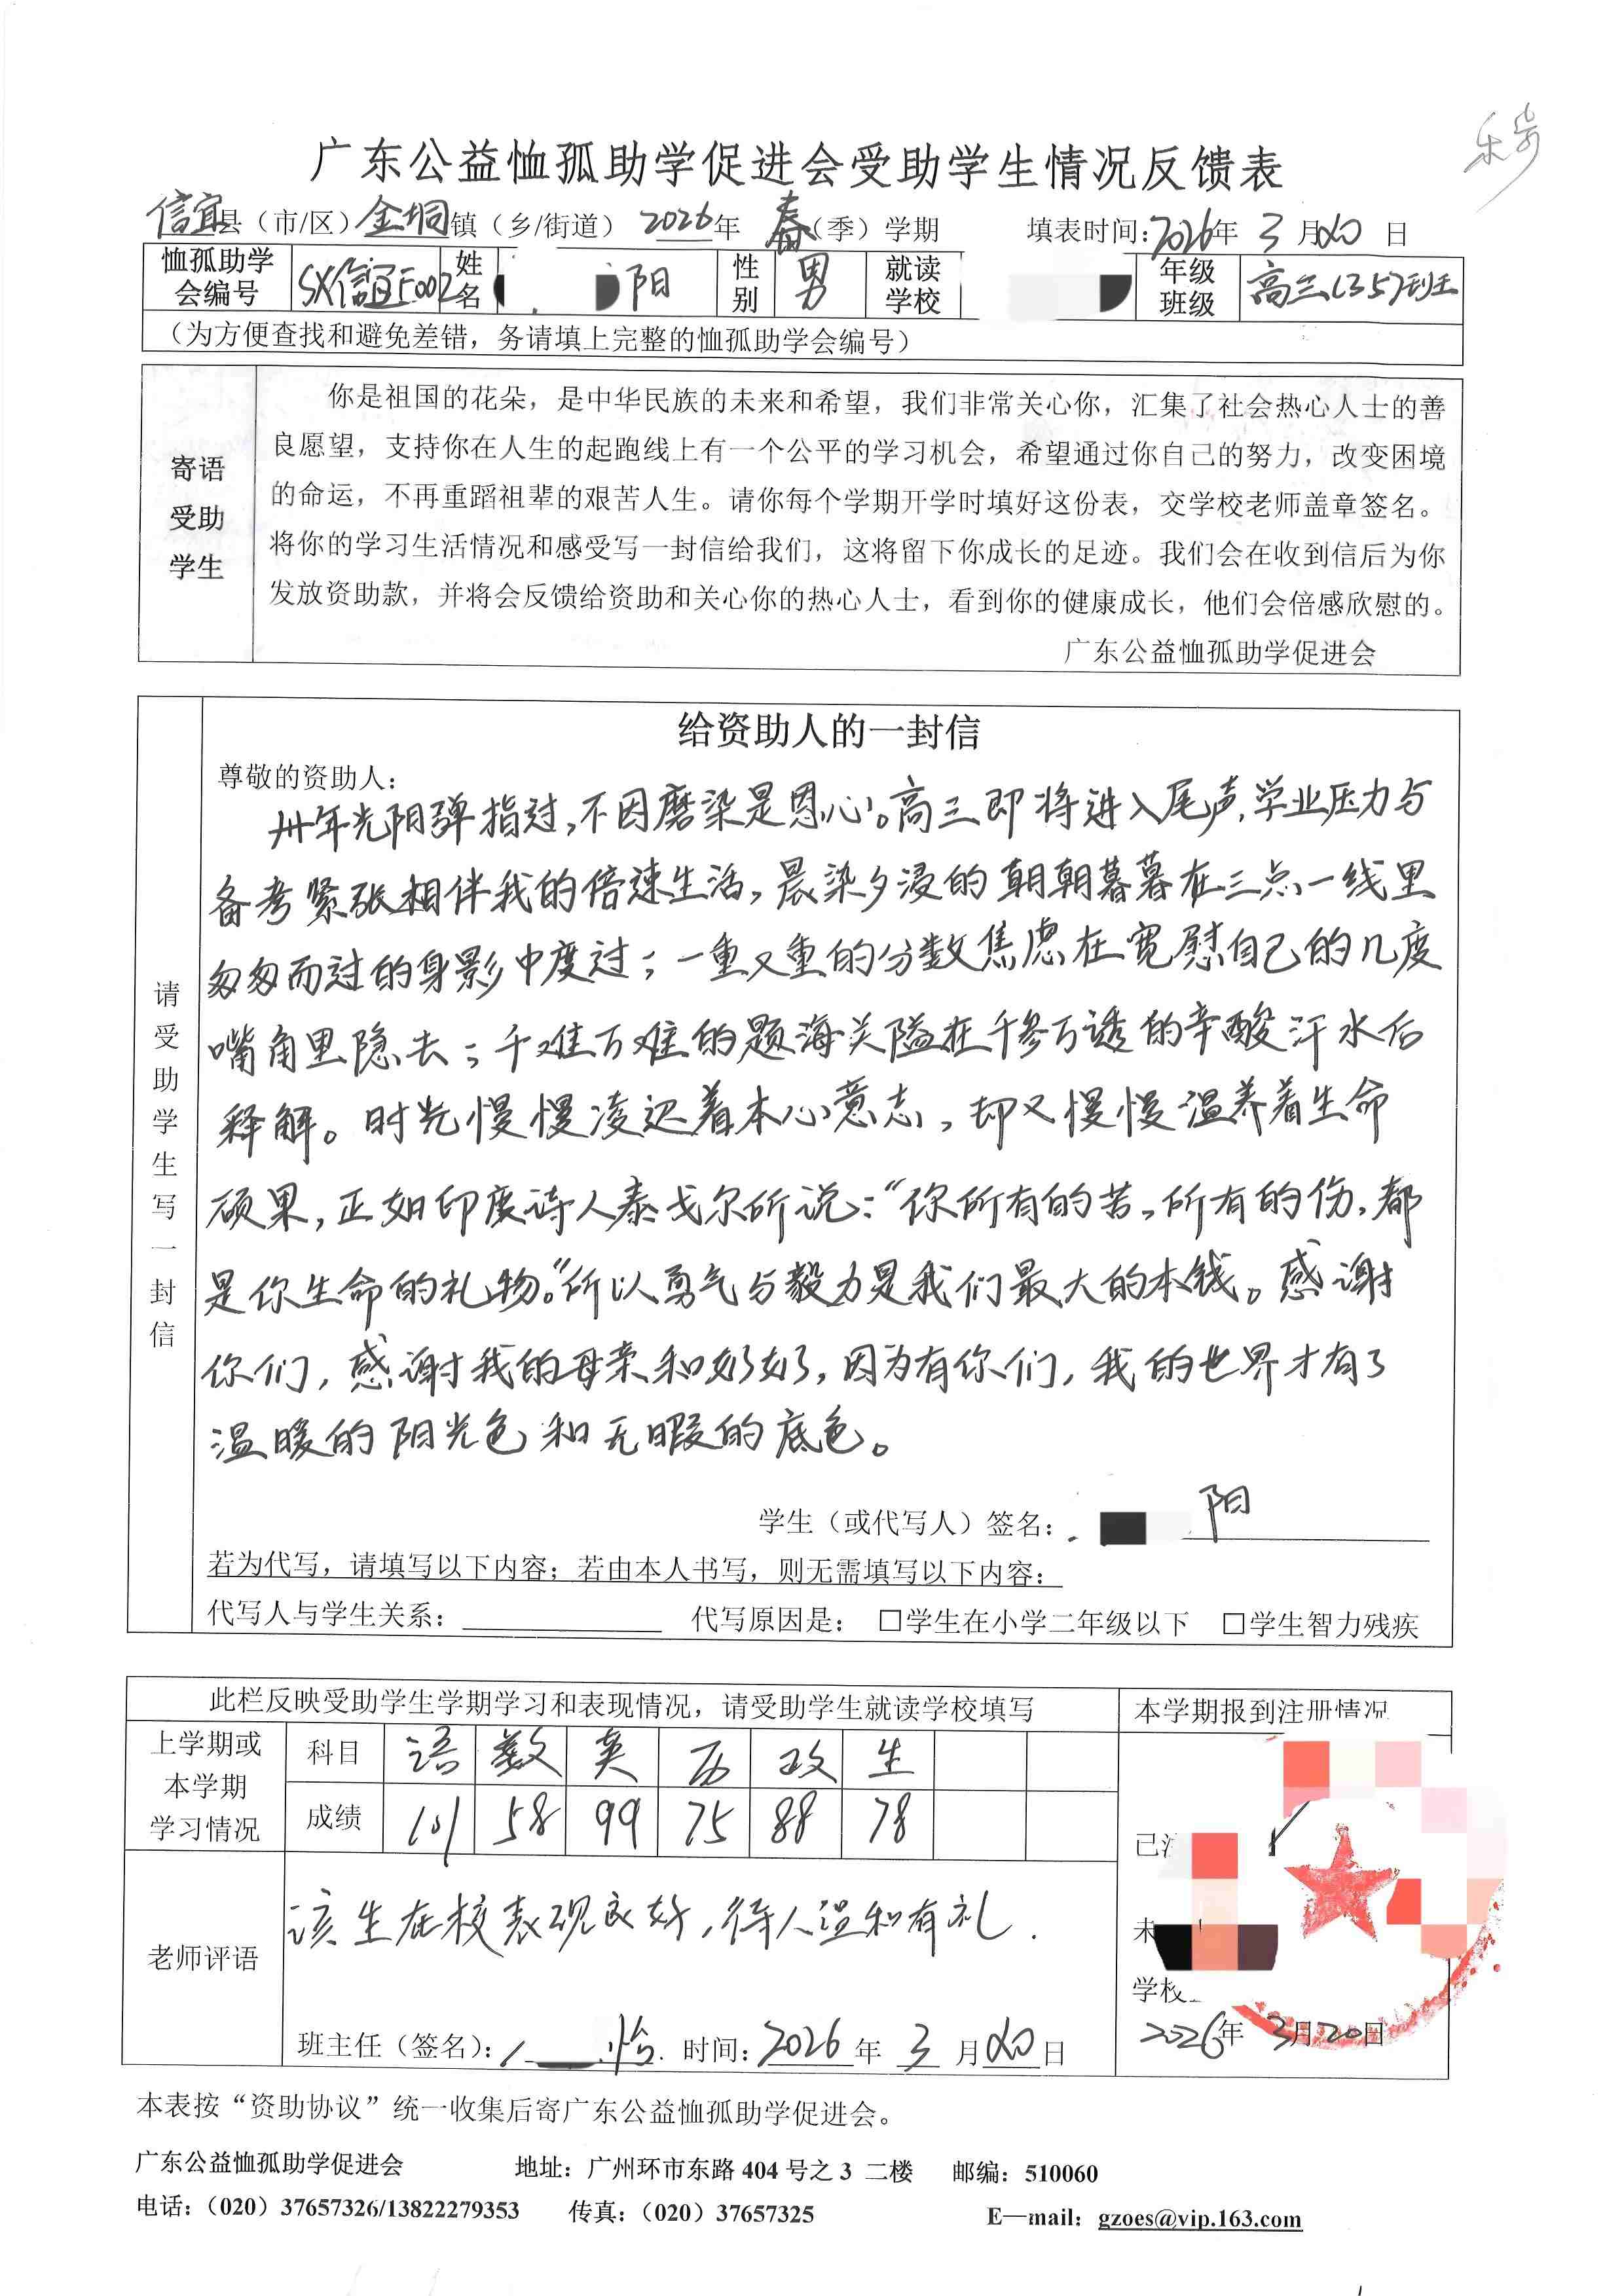 广东公益恤孤助学促进会受助学生情况反馈表
信宜县（市/区）金垌镇（乡/街道）2026年 春（季）学期 填表时间：2026年3月20日
恤孤助学会编号 SX信宜E002 姓名 阳 性别 男 就读学校 年级班级 高三（35）班
（为方便查找和避免差错，务请填上完整的恤孤助学会编号）
寄语受助学生
你是祖国的花朵，是中华民族的未来和希望，我们非常关心你，汇集了社会热心人士的善
良愿望，支持你在人生的起跑线上有一个公平的学习机会，希望通过你自己的努力，改变困境
的命运，不再重蹈祖辈的艰苦人生。请你每个学期开学时填好这份表，交学校老师盖章签名。
将你的学习生活情况和感受写一封信给我们，这将留下你成长的足迹。我们会在收到信后为你
发放资助款，并将会反馈给资助和关心你的热心人士，看到你的健康成长，他们会倍感欣慰的。
广东公益恤孤助学促进会
请受助学生写一封信
给资助人的一封信
尊敬的资助人：
卅年光阴弹指过，不因磨染是恩心。高三即将进入尾声，学业压力与
备考紧张相伴我的倍速生活，晨染夕浸的朝朝暮暮在三点一线里
匆匆而过的身影中度过；一重又重的分数焦虑在宽慰自己的几度
嘴角里隐去；千难万难的题海关隘在千参万透的辛酸汗水后
释解。时光慢慢凌迟着本心意志，却又慢慢温养着生命
硕果，正如印度诗人泰戈尔所说：“你所有的苦，所有的伤，都
是你生命的礼物。”所以勇气与毅力是我们最大的本钱。感谢
你们，感谢我的母亲和奶奶，因为有你们，我的世界才有了
温暖的阳光色和无暇的底色。
学生（或代写人）签名： 阳
若为代写，请填写以下内容；若由本人书写，则无需填写以下内容：
代写人与学生关系： 代写原因是： □学生在小学二年级以下 □学生智力残疾
此栏反映受助学生学期学习和表现情况，请受助学生就读学校填写 本学期报到注册情况
上学期或本学期学习情况
科目 语 数 英 历 政 生
成绩 101 58 99 75 88 78
已
未
学校
2026年3月20日
老师评语
该生在校表现良好，待人温和有礼.
班主任（签名）： 怡 时间：2026年3月20日
本表按“资助协议”统一收集后寄广东公益恤孤助学促进会。
广东公益恤孤助学促进会 地址：广州环市东路404号之3 二楼 邮编：510060
电话：（020）37657326/13822279353 传真：（020）37657325 E—mail：gzoes@vip.163.com